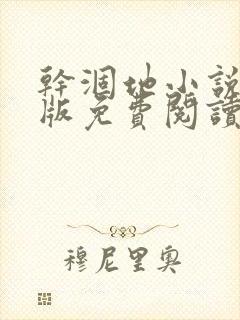 幹涸地小說
版免費閱讀
穆尼里奧